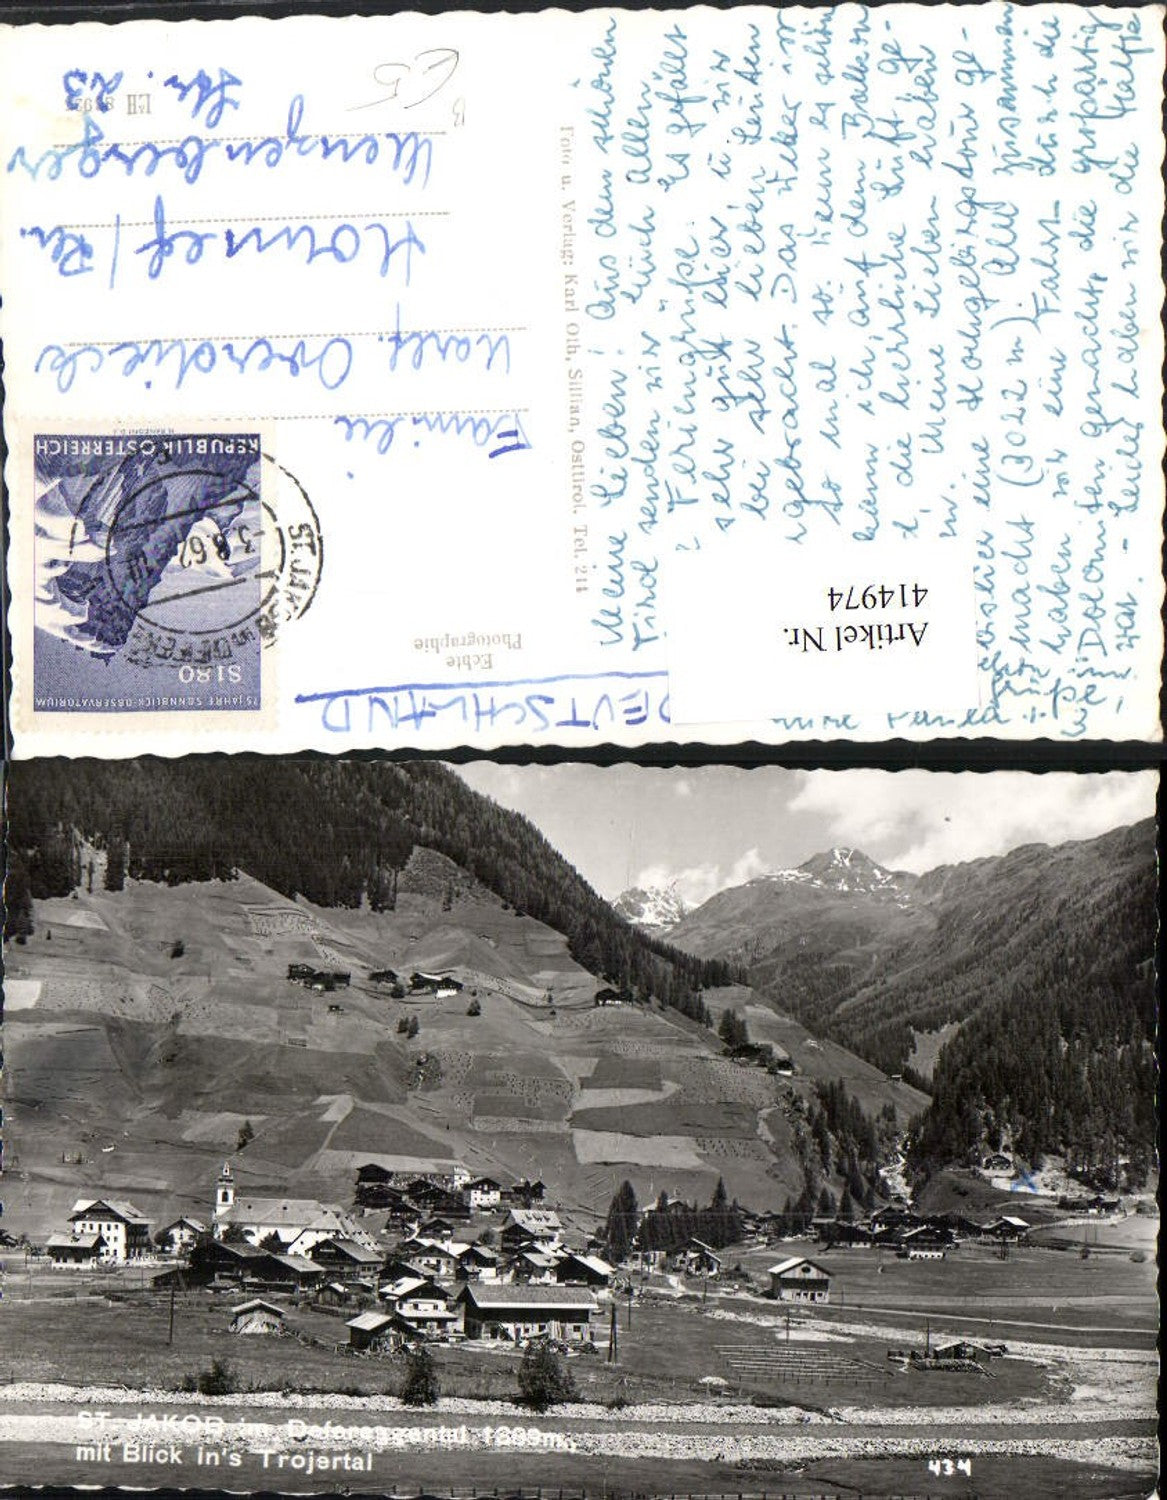 Meine Lieben! Aus dem schönen
Tirol senden wir Euch allen
Feriengrüße. Es gefällt
sehr gut hier u. wir
bei sehr lieben Leuten
gebracht. Das Wetter ist
so mal so. Wenn es schön
kann ich auf dem Balkon
die herrliche Luft ge-
Meine Lieben haben
eine Hochgebirgstour ge-
macht (3022 m) Alle zusammen
haben wir eine Fahrt durch die
Dolomiten gemacht die großartig
war. - Leider haben wir die Hälfte
Grüße
Artikel Nr.
414974
Foto u. Verlag: Karl Oth, Sillian, Osttirol, Tel. 211
Echte
Photographie
REPUBLIK ÖSTERREICH
75 JAHRE SONNBLICK-OBSERVATORIUM
S1.80
ST. JAKOB
-3.8.62
Familie
Overdieck
Honnef/Rh.
Menzenberger
Str. 23
DEUTSCHLAND
ST. JAKOB im Defereggental 1389m,
mit Blick in's Trojertal
434